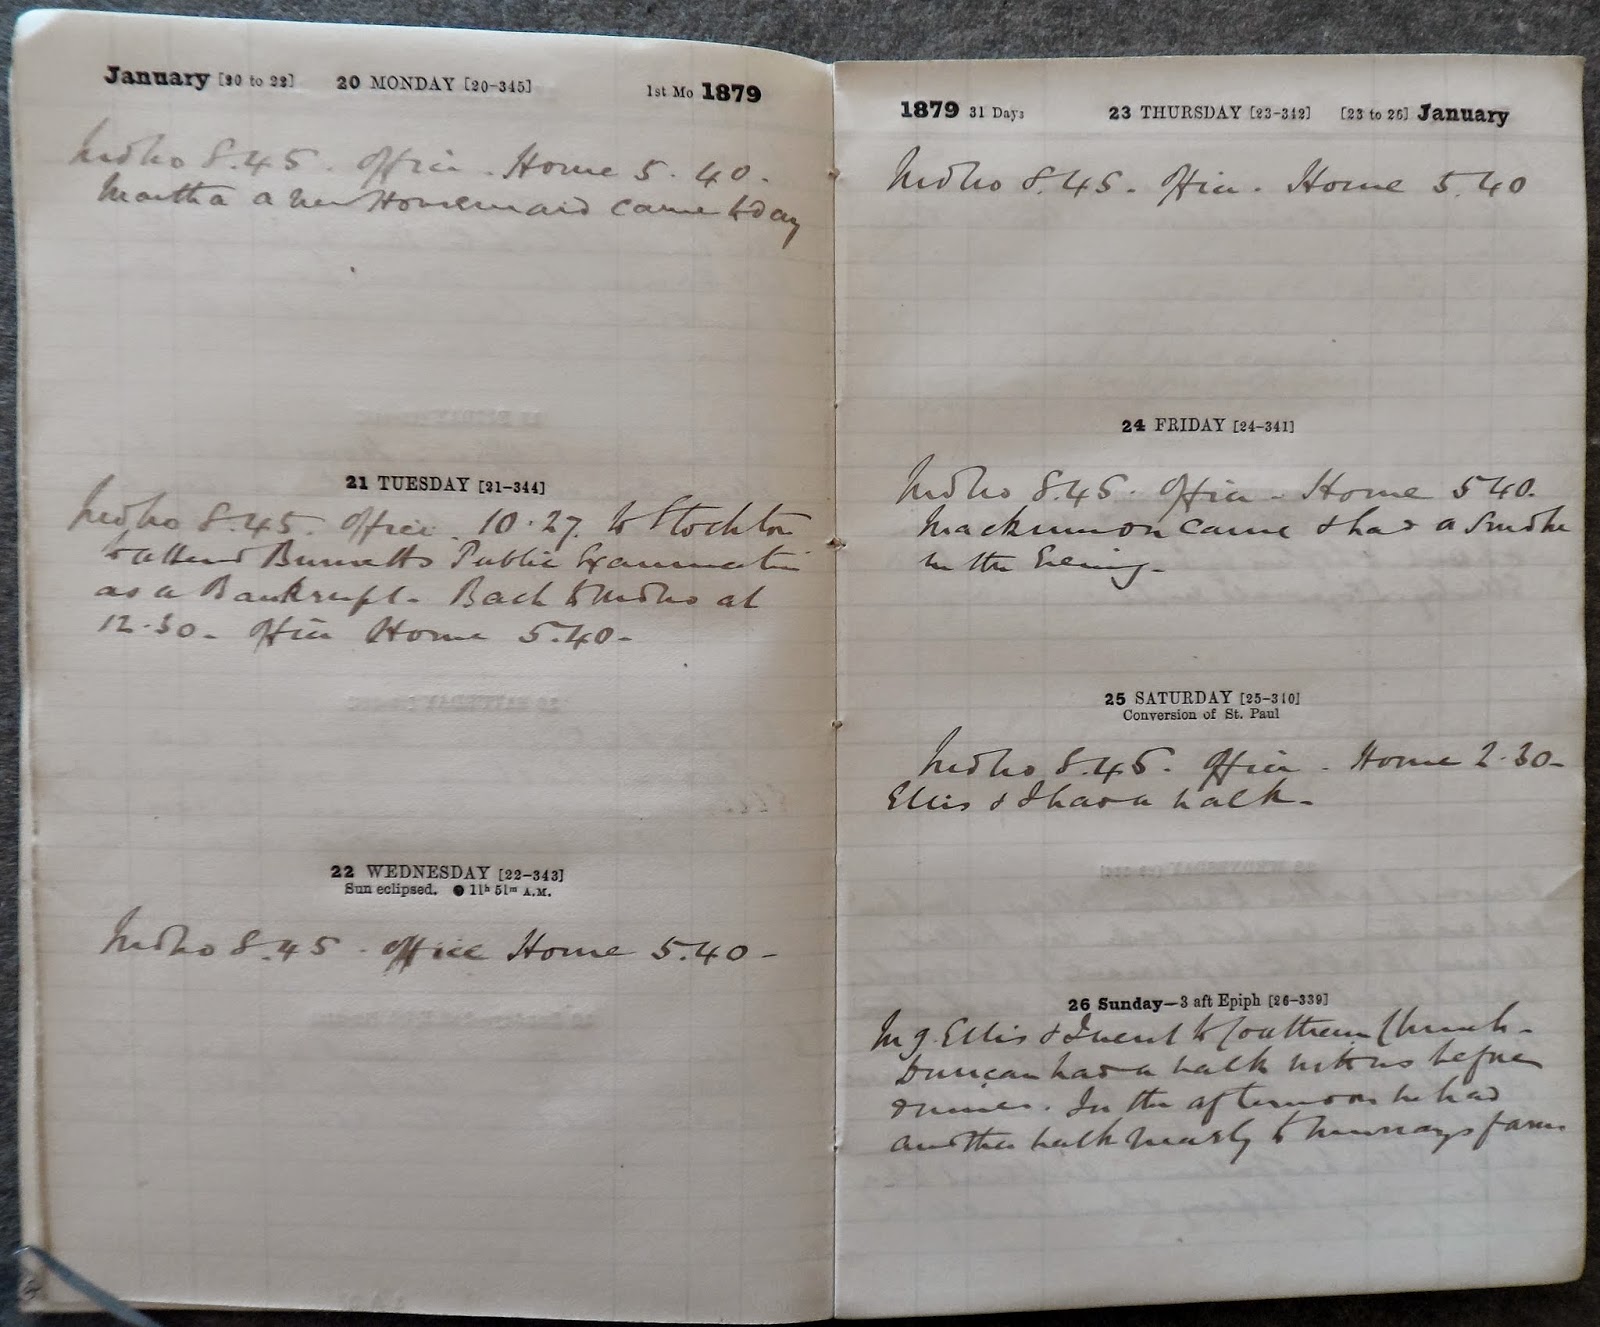 January [20 to 22] 20 MONDAY [20-345] 1st Mo 1879
Mdbo 8.45. Office. Home 5.40.
Martha a new Housemaid came today
21 TUESDAY [21-344]
Mdbo 8.45. Office. 10.27 to Stockton
to attend Burnetts Public Examination
as a Bankrupt. Back to Mdbo at
12.30. Office Home 5.40-
22 WEDNESDAY [22-343]
Sun eclipsed. ● 11h 51m A.M.
Mdbo 8.45. Office Home 5.40-
1879 31 Days 23 THURSDAY [23-342] [23 to 26] January
Mdbo 8.45. Office. Home 5.40
24 FRIDAY [24-341]
Mdbo 8.45. Office. Home 5 40.
Mackinnon came & had a Smoke
in the Evening-
25 SATURDAY [25-340]
Conversion of St. Paul
Mdbo 8.45. Office. Home 2.30-
Ellis & I had a walk-
26 Sunday—3 aft Epiph [26-339]
Ellis & I went to Church-
Duncan had a walk with us before
dinner. In the afternoon he had
another walk nearly to Murrays farm